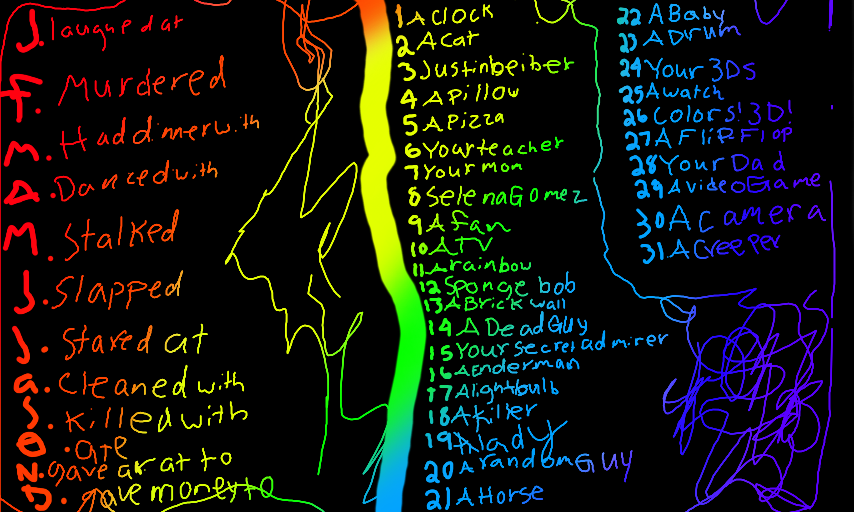 J. laughed at
F. Murdered
M. Had dinner with
A. Danced with
M. Stalked
J. Slapped
J. Stared at
a. Cleaned with
S. Killed with
O. Ate
N. gave a rat to
D. gave money to
1 A Clock
2 A Cat
3 Justinbeiber
4 A Pillow
5 A Pizza
6 Your teacher
7 Your mom
8 Selena Gomez
9 A fan
10 A TV
11 A rainbow
12 Sponge bob
13 A Brick wall
14 A Dead Guy
15 Your secret admirer
16 A Enderman
17 A lightbulb
18 A killer
19 A lady
20 A random GUY
21 A Horse
22 A Baby
23 A DRUM
24 Your 3DS
25 A watch
26 Colors! 3D!
27 A FLIP FLOP
28 Your Dad
29 A video Game
30 A camera
31 A Creeper